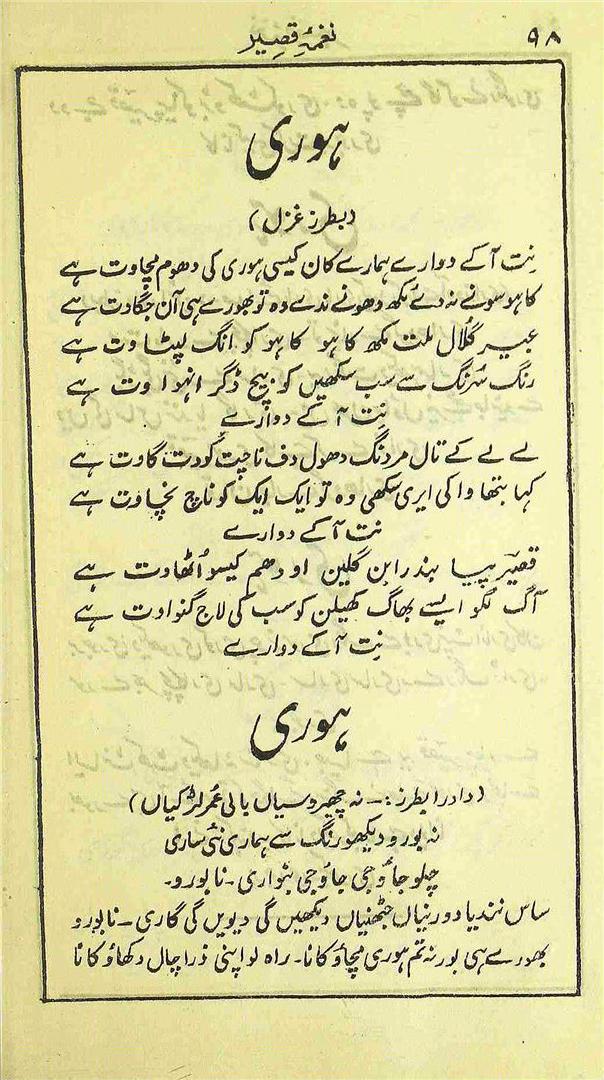 ۹۸
نغمۂ قصیر
ہوری
(بطرز غزل)
نِت آ کے دوارے ہمارے کان کیسی ہوری کی دھوم مچاوت ہے
کاہو سونے نہ دے مُکھ دھونے ندے وہ تو بھورے ہی آن جگادت ہے
عبیر گلال ملت مکھ کاہو کاہو کو انگ لپٹاوت ہے
رنگ سُرنگ سے سب سکھیں کو بیچ ڈگر انہواوت ہے
نِت آ کے دوارے
لے لے کے تال مردنگ دھول دف ناچت کُودت گاوت ہے
کہا بتھا واکی ایری سکھی وہ تو ایک ایک کو ناچ نچاوت ہے
نت آ کے دوارے
قصیرؔ پیا بندرابن گلین اودھم کیسو اُٹھاوت ہے
آگ لگو ایسے بھاگ کھیلن کو سب کی لاج گنواوت ہے
نِت آ کے دوارے
ہوری
(دادرا بطرز:۔ نہ چھیرو سیاں بالی عمر لڑکیاں)
نہ بورو دیکھو رنگ سے ہماری نئی ساری
چلو جاؤ جی جاؤ جی بنواری۔ نا بورو۔
ساس نند یا دورنیاں جٹھنیاں دیکھیں گی دیویں گی گاری۔ نا بورو
بھورے ہی بور نہ تم ہوری مچاؤ کانا۔ راہ لو اپنی ذرا چال دکھاؤ کانا